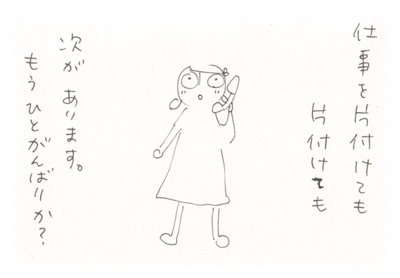 仕事を片付けても
片付けても
次が あります。
もう ひとがんばりか?